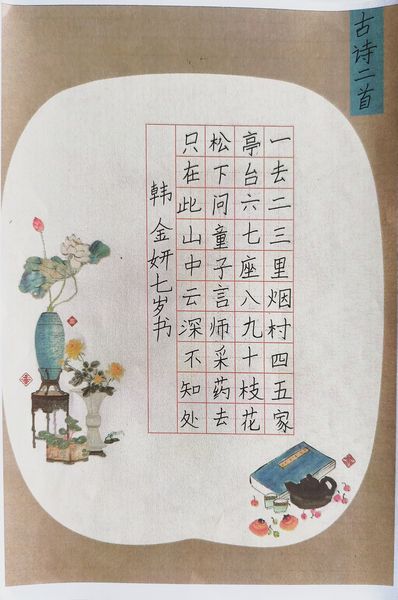 古诗二首
一去二三里烟村四五家
亭台六七座八九十枝花
松下问童子言师采药去
只在此山中云深不知处
韩金妍七岁书